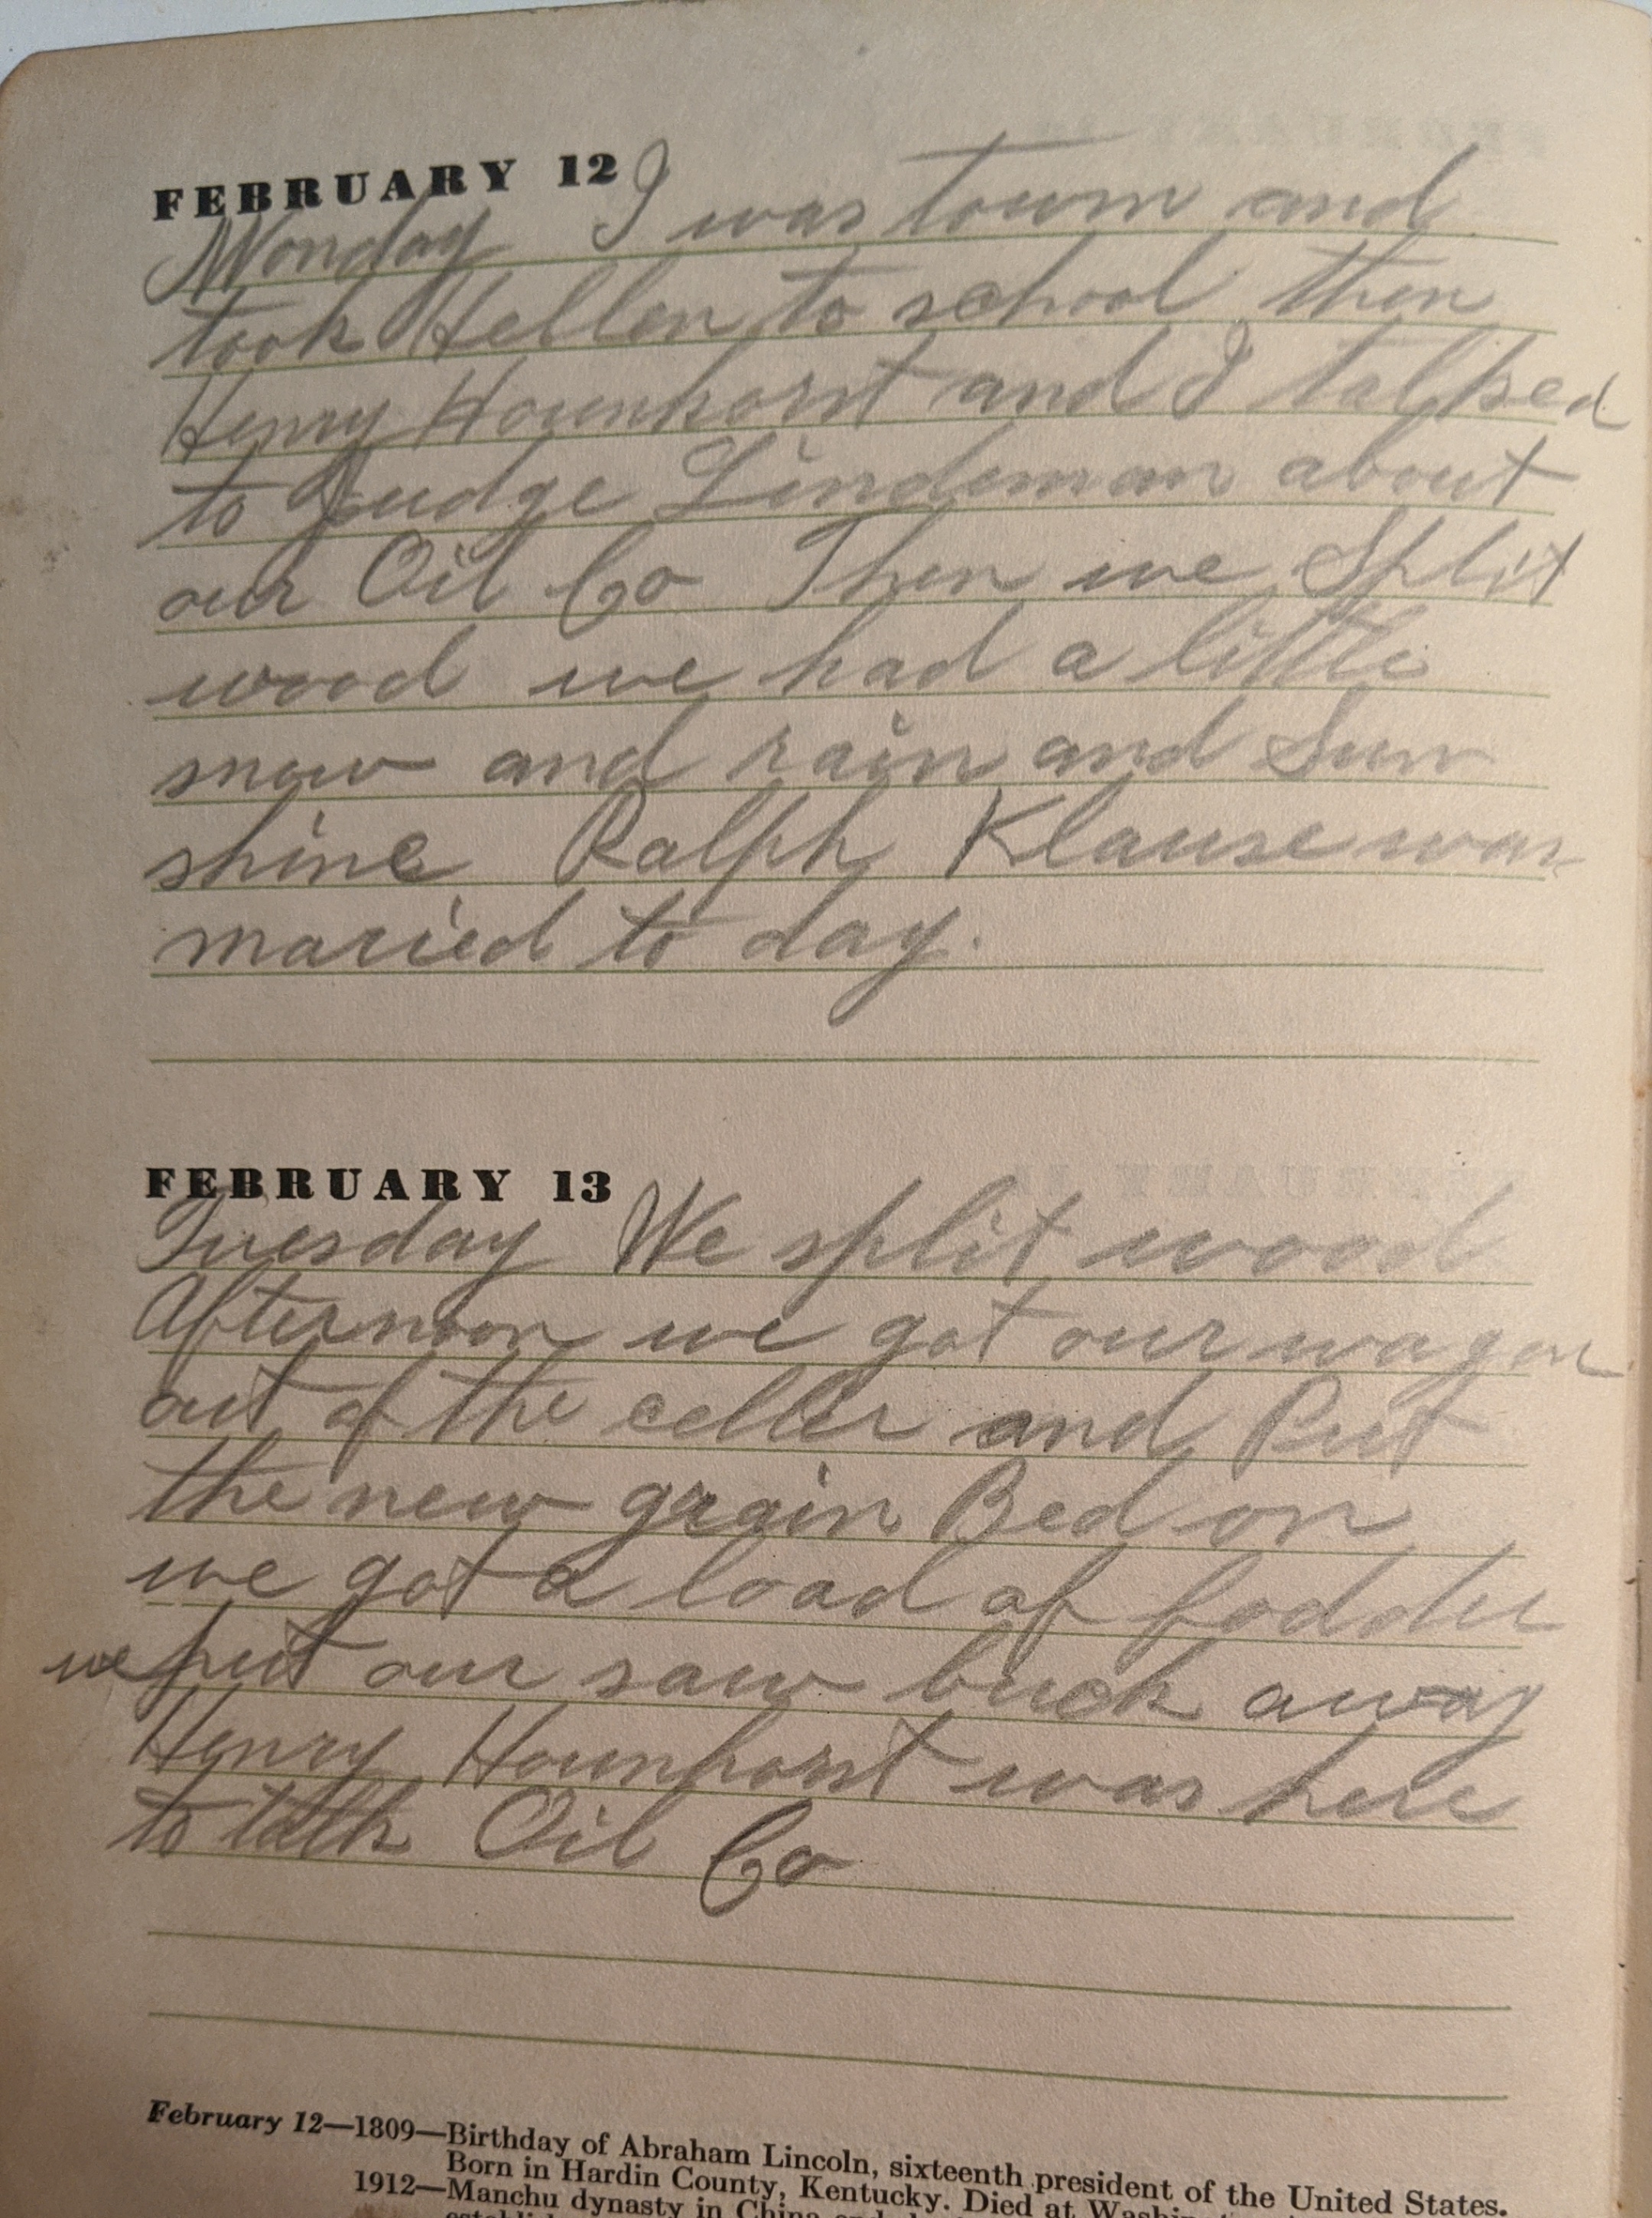 FEBRUARY 12
Monday I was town and
took Hellen to school then
Henry Hounhorst and I talked
to Judge Lindeman about
our Oil Co Then we Split
wood we had a little
snow and rain and Sun
shine Ralph Klause was
maried to day.
FEBRUARY 13
Tuesday We split wood
Afternoon we got our wagon
out of the celler and Put
the new grain Bed on
we got a load of fodder
we put our saw buck away
Henry Hounhorst was here
to talk Oil Co
February 12—1809—Birthday of Abraham Lincoln, sixteenth president of the United States.
Born in Hardin County, Kentucky. Died at
1912—Manchu dynasty in China